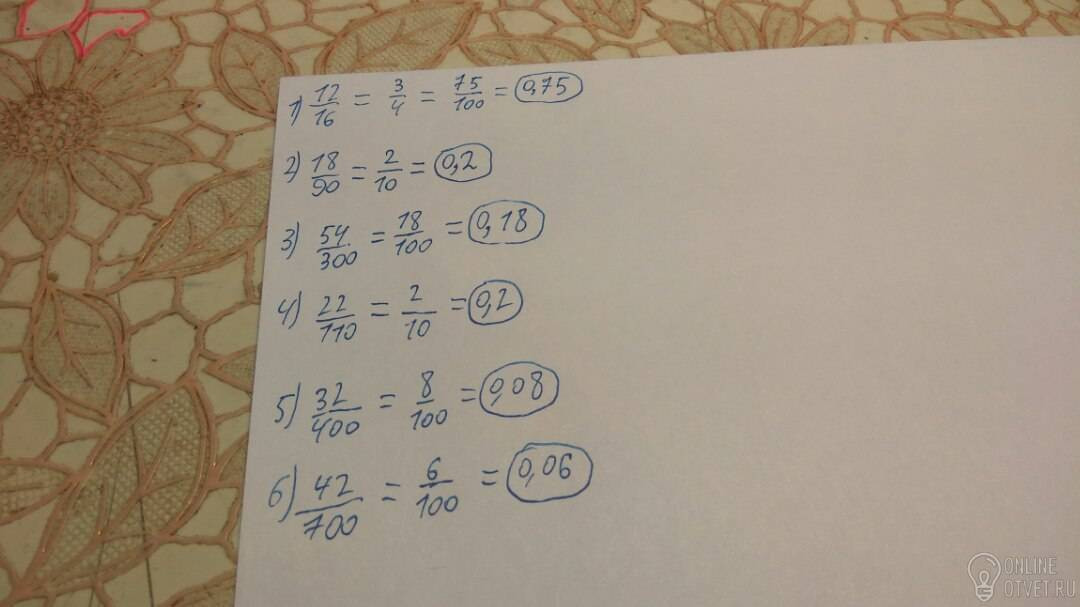 1) 12/16 = 3/4 = 75/100 = 0,75
2) 18/90 = 2/10 = 0,2
3) 54/300 = 18/100 = 0,18
4) 22/110 = 2/10 = 0,2
5) 32/400 = 8/100 = 0,08
6) 42/700 = 6/100 = 0,06
ONLINE
OTVET.RU